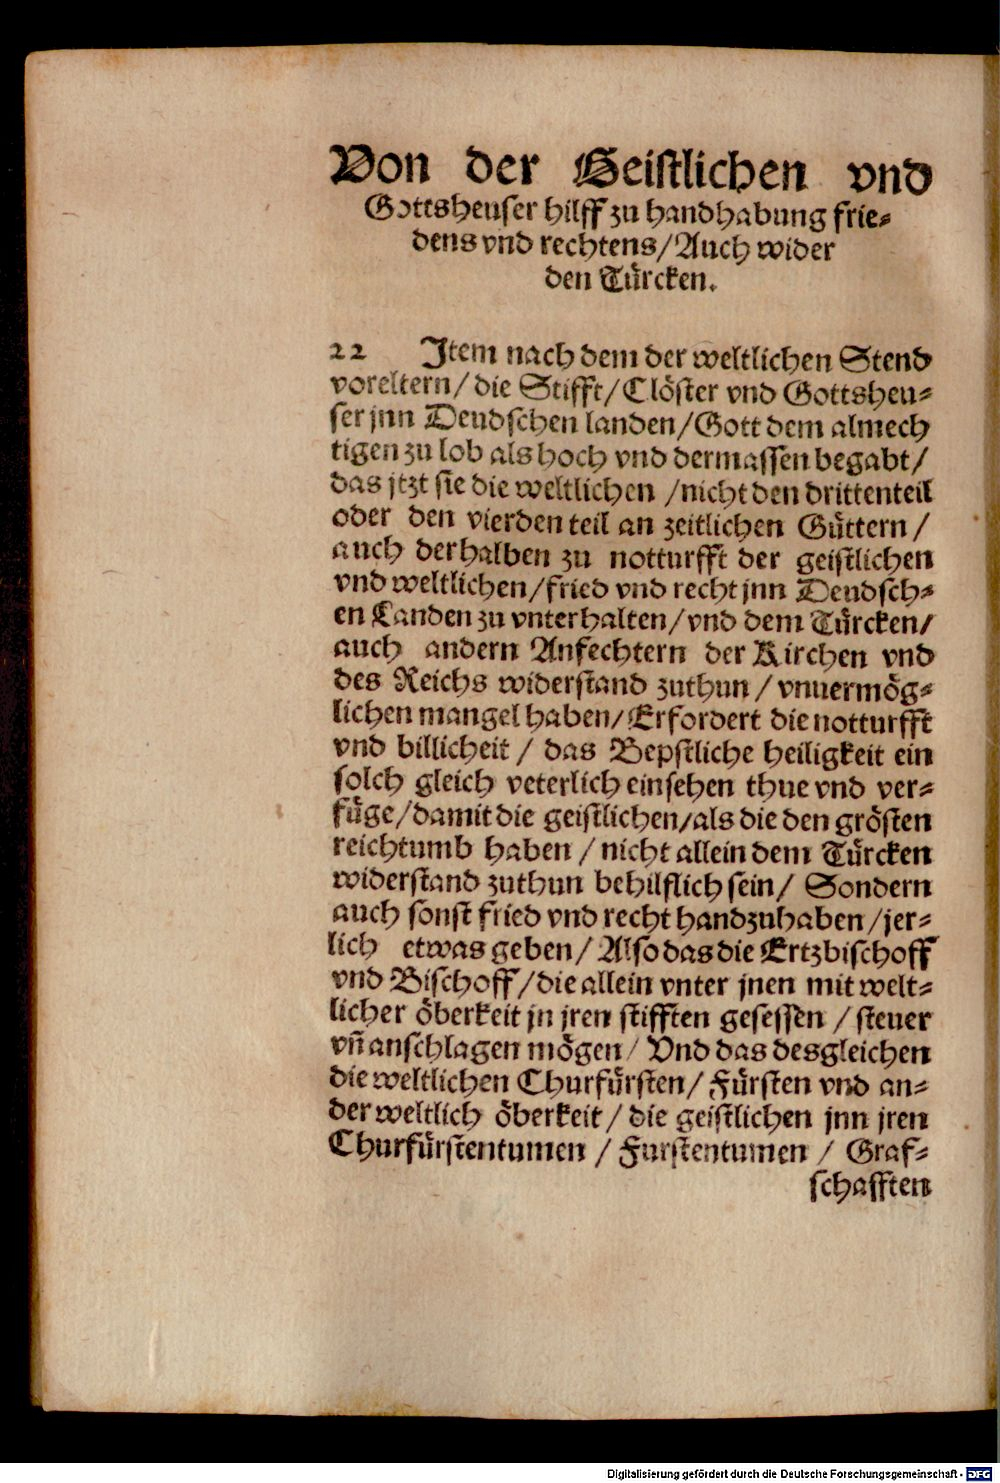 Von der Geistlichen vnd
Gottsheuser hilff zu handhabung frie-
dens vnd rechtens/Auch wider
den Türcken.
22 Item nach dem der weltlichen Stend
voreltern/ die Stifft/ Clöster vnd Gottsheu-
ser jnn Deudschen landen/Gott dem almech
tigen zu lob als hoch vnd dermassen begabt/
das jtzt sie die weltlichen /nicht den drittenteil
oder den vierden teil an zeitlichen Güttern/
auch derhalben zu notturfft der geistlichen
vnd weltlichen/fried vnd recht jnn Deudsch-
en Landen zu vnterhalten/vnd dem Türcken/
auch andern Anfechtern der Kirchen vnd
des Reichs widerstand zuthun/ vnuermög-
lichen mangel haben/Erfordert die notturfft
vnd billicheit/ das Bepstliche heiligkeit ein
solch gleich veterlich einsehen thue vnd ver-
füge/damit die geistlichen/als die den grösten
reichtumb haben/ nicht allein dem Türcken
widerstand zuthun behilflich sein/ Sondern
auch sonst fried vnd recht handzuhaben/jer-
lich etwas geben/ Also das die Ertzbischoff
vnd Bischoff/die allein vnter jnen mit welt-
licher öberkeit jn jren stifften gesessen/ steuer
vñ anschlagen mögen/ Vnd das desgleichen
die weltlichen Churfürsten/ Fürsten vnd an-
der weltlich öberkeit/ die geistlichen jnn jren
Churfürstentumen/ Furstentumen/ Graf-
schafften
Digitalisierung gefördert durch die Deutsche Forschungsgemeinschaft - DFG